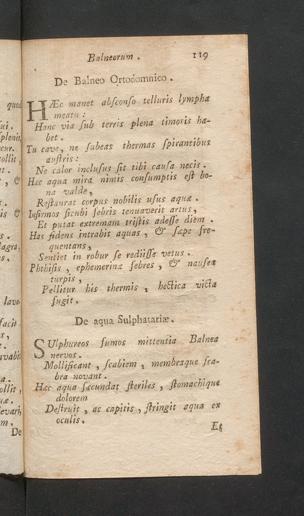 Balneorum. 119
De Balneo Ortodomnico.
HÆc manet absconso telluris lympha
meatu:
Hanc via sub terris plena timoris ha-
bet.
Tu cave, ne subeas thermas spirantibus
austris:
Ne calor inclusus sit tibi causa necis.
Hæc aqua mira nimis consumptis est bo-
na valde,
Restaurat corpus nobilis usus aquæ.
Infirmos sicubi febris tenuaverit artus,
Et putat extremam tristis adesse diem.
Has fidens intrabit aquas, & sæpe fre-
quentans,
Sentiet in robur se rediisse vetus.
Phthisis, ephemerinæ febres, & nausea
turpis,
Pellitur his thermis, hectica victa
fugit.
De aqua Sulphatariæ.
SUlphureos fumos mittentia Balnea
nervos.
Mollificant, scabiem, membraque sca-
bra novant.
Hæc aqua fœcundat steriles, stomachique
dolorem
Destruit, ac capitis, stringit aqua ex
oculis.
Et